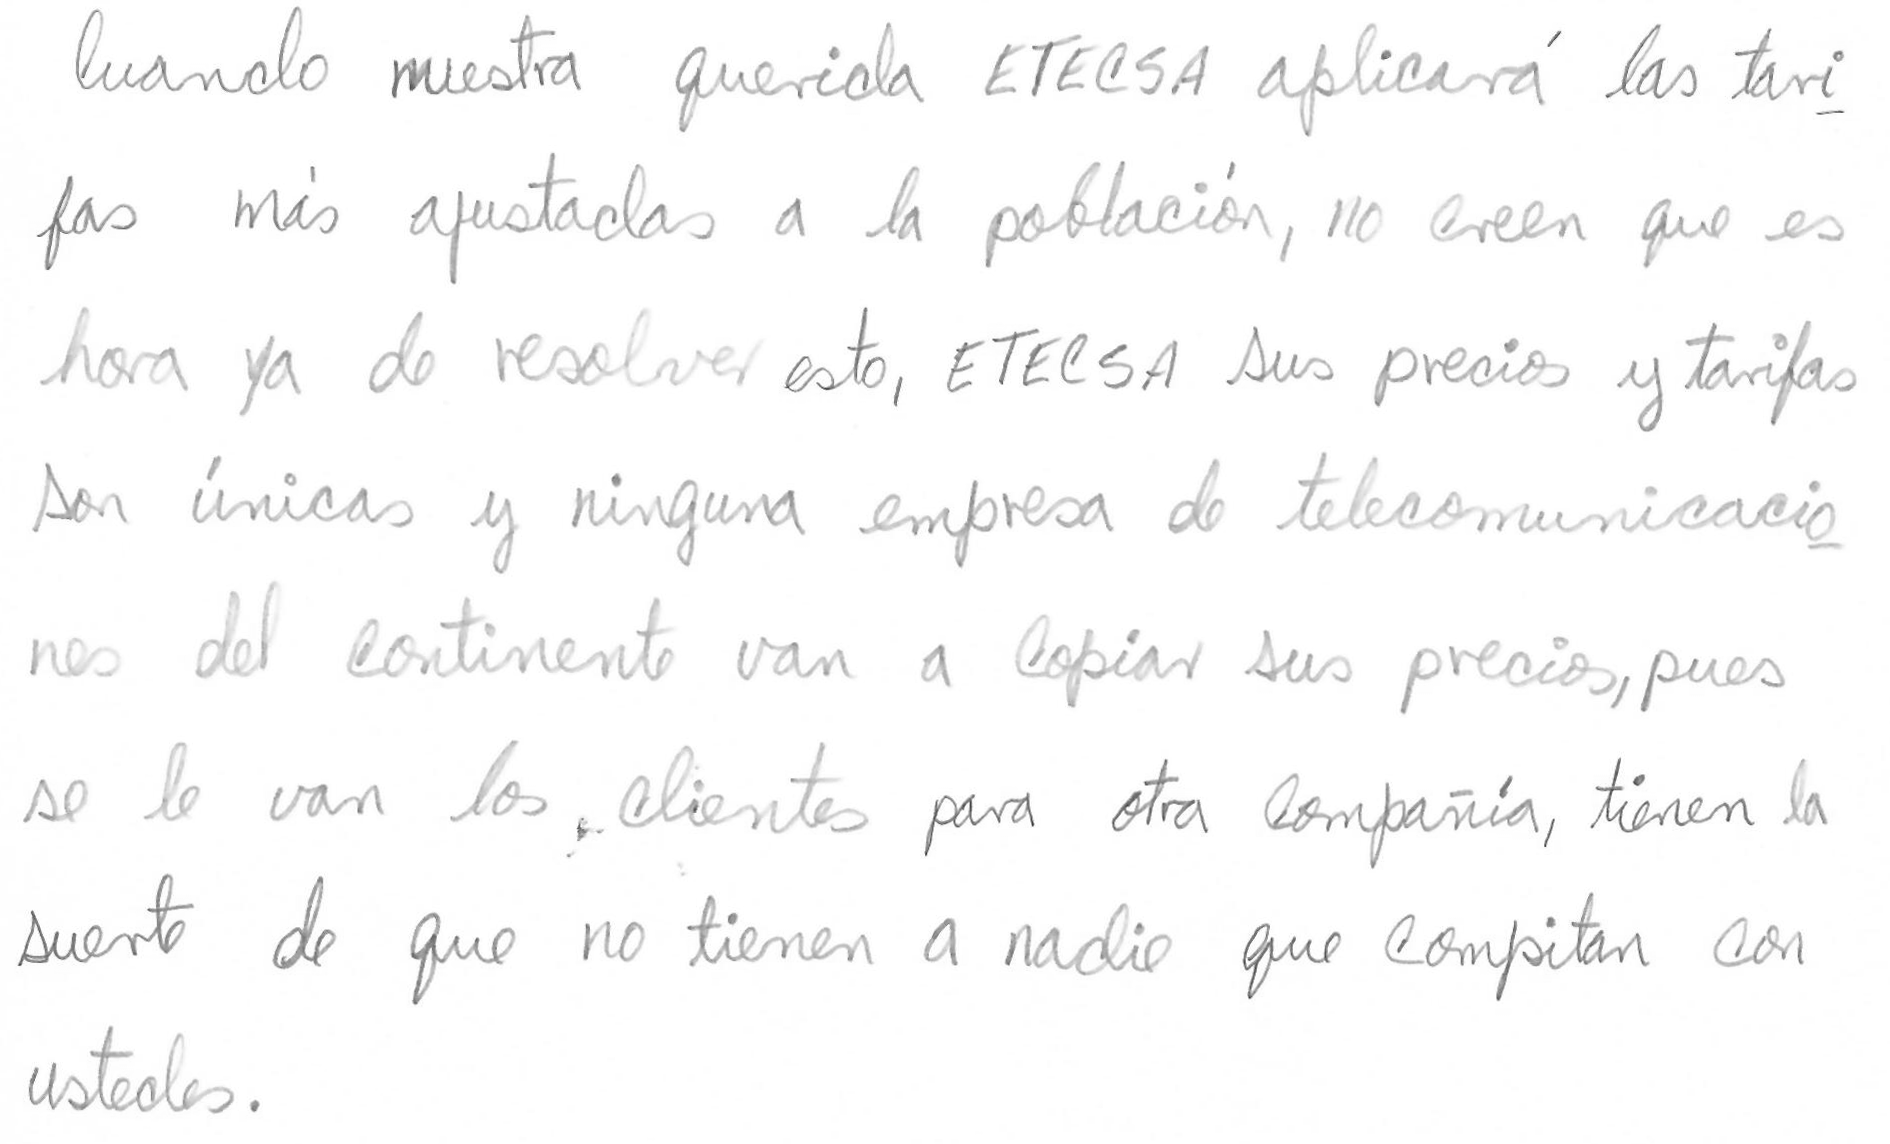 Cuando nuestra querida ETECSA aplicará las tari
fas más ajustadas a la población, no creen que es
hora ya de resolver esto, ETECSA sus precios y tarifas
son únicas y ninguna empresa de telecomunicacio
nes del continente van a copiar sus precios, pues
se le van los clientes para otra compañía, tienen la
suerte de que no tienen a nadie que compitan con
ustedes.